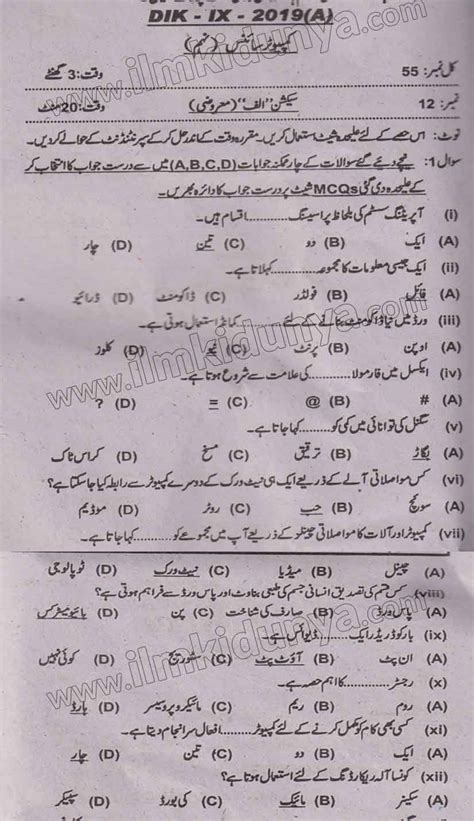 DIK - IX - 2019(A)
کمپیوٹر سائنس (نہم)
کل نمبر: 55 وقت: 3 گھنٹے
نمبر: 12 سیکشن "الف" (معروضی) وقت: 20 منٹ
نوٹ: اس حصے کے لئے علیحدہ شیٹ استعمال کریں۔ مقررہ وقت کے اندر حل کر کے سپرنٹنڈنٹ کے حوالے کر دیں۔
سوال 1: نیچے دیئے گئے سوالات کے چار ممکنہ جوابات (A,B,C,D) میں سے درست جواب کا انتخاب کر
کے علیحدہ دی گئی MCQs شیٹ پر درست جواب کا دائرہ بھریں۔
(i) آپریٹنگ سسٹم کی بلحاظ پراسیسنگ..........اقسام ہیں۔
(A) ایک (B) دو (C) تین (D) چار
(ii) ایک جیسی معلومات کا مجموعہ..........کہلاتا ہے۔
(A) فائل (B) فولڈر (C) ڈاکومنٹ (D) ڈرائیو
(iii) ورڈ میں نیا ڈاکومنٹ بنانے کے لئے..........کمانڈ استعمال ہوتی ہے۔
(A) اوپن (B) پرنٹ (C) نیو (D) کلوز
(iv) ایکسل میں فارمولا..........کی علامت سے شروع ہوتا ہے۔
(A) # (B) @ (C) = (D) ?
(v) سگنل کی توانائی میں کمی کو..........کہا جاتا ہے۔
(A) بگاڑ (B) ترقیق (C) مسخ (D) کراس ٹاک
(vi) کس مواصلاتی آلے کے ذریعے ایک ہی نیٹ ورک کے دوسرے کمپیوٹر سے رابطہ کیا جا سکتا ہے؟
(A) سوئچ (B) حب (C) روٹر (D) موڈیم
(vii) کمپیوٹر اور آلات کا مواصلاتی چینلو کے ذریعے آپ میں مجموعے کو..........کہا جاتا ہے۔
(A) چینل (B) میڈیا (C) نیٹ ورک (D) ٹوپالوجی
(viii) کس قسم کی تصدیق انسانی جسم کی طبیعی بناوٹ اور پاس ورڈ سے فراہم ہوتی ہے؟
(A) پاس ورڈ (B) صارف کی شناخت (C) پن (D) بائیومیٹرکس
(ix) بارکوڈ ریڈر ایک..........ڈیوائس ہے۔
(A) ان پٹ (B) آؤٹ پٹ (C) سٹوریج (D) کوئی نہیں
(x) رجسٹر..........کا اہم حصہ ہے۔
(A) روم (B) ریم (C) مائیکرو پروسیسر (D) ہارڈ
(xi) کسی بھی کام کو مکمل کرنے کے لئے کمپیوٹر..........افعال سرانجام دیتا ہے۔
(A) ایک (B) دو (C) تین (D) چار
(xii) کونسا آلہ ریکارڈنگ کے لئے استعمال ہوتا ہے؟
(A) سکینر (B) مائیک (C) کی بورڈ (D) سپیکر
www.ilmkidunya.com
www.ilmkidunya.com
www.ilmkidunya.com